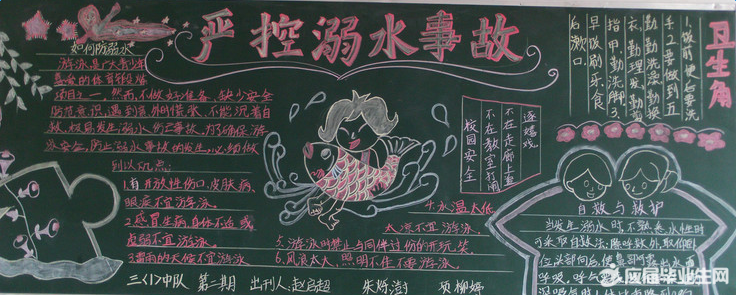 严控溺水事故
如何防溺水
游泳是广大青少年
喜爱的体育锻炼
项目之一。然而,不做好准备、缺少安全
防范意识,遇到意外时慌张、不能沉着自
救,极易发生溺水伤亡事故。为了确保游
泳安全,防止溺水事故的发生,必须做
到以下几点:
1.有开放性伤口、皮肤病、
眼疾不宜游泳。
2.感冒生病、身体不适或
虚弱不宜游泳。
3.雷雨的天气不宜游泳
4.水温太低
太凉不宜游泳。
5.游泳时禁止与同伴过份的开玩笑
6.风浪太大、照明不佳不要游泳。
三<1>中队 第二期 出刊人:赵启超 朱烁澍 项柳婷
逐嬉戏。
不在走廊上追
不在教室打闹
校园安全
卫生角
1.饭前便后要洗
手2.要做到五
勤勤洗澡勤换
衣、勤理发、勤剪
指甲、勤洗脚3.
早饭刷牙、食
后漱口
自救与救护
当发生溺水时,不熟悉水性时
可采取自救法:除呼救外,取仰
位,头部向后,使鼻部可露出水面
呼吸。
应届毕业生网